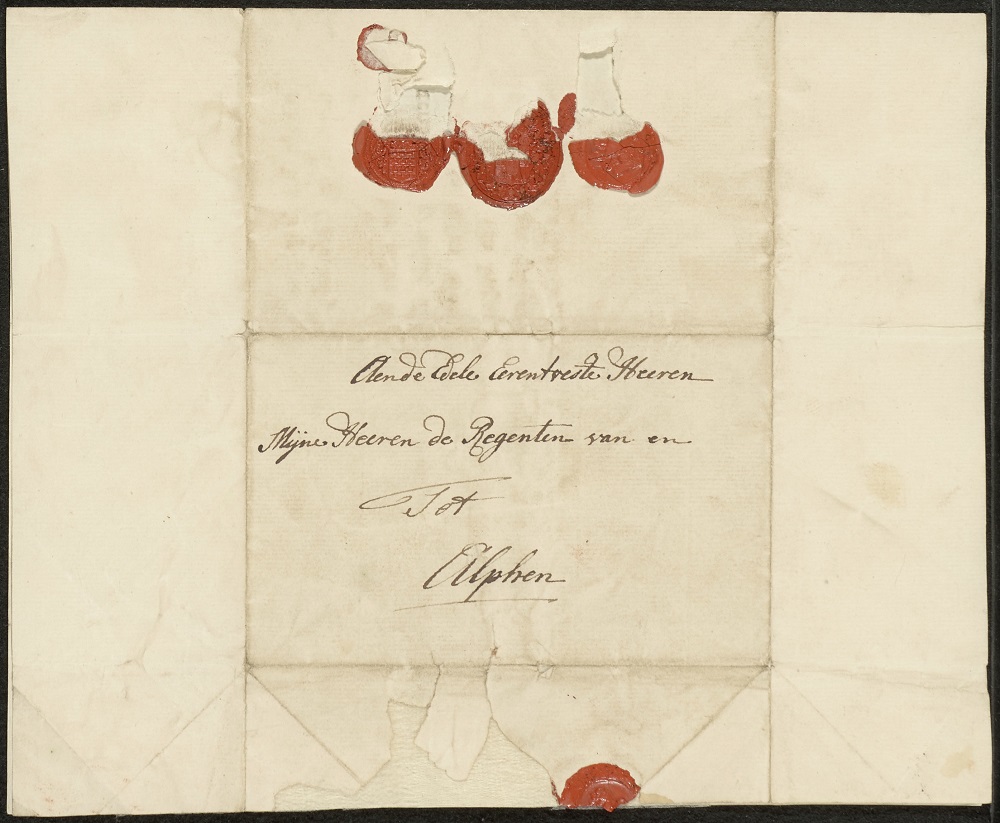 Aen de Edele Eerentveste Heeren
Mijne Heeren de Regenten van en
Tot
Alphen